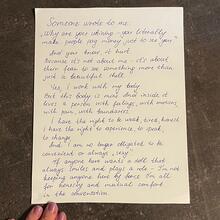 Someone wrote to me:
Why are you whining - you literally
make people pay money just to see "you"
And you know, it hurt.
Because it's not about me - it's about
these
to see something more than
just a beautiful shell.
Yes I work with my body.
But this body is mine. And inside, it
lives a person with feelings, with
with pain, with boundaries.
I have the right to be weak, tired,
I have the right to experience, to speak,
to change
And I am no longer obligated to be
convenient or always "sexy"
If anyone here wants a doll that
always smiles and plays a role - I'm not
keeping anyone here by force. I'm all
for honesty and mutual comfort
in the conversation.